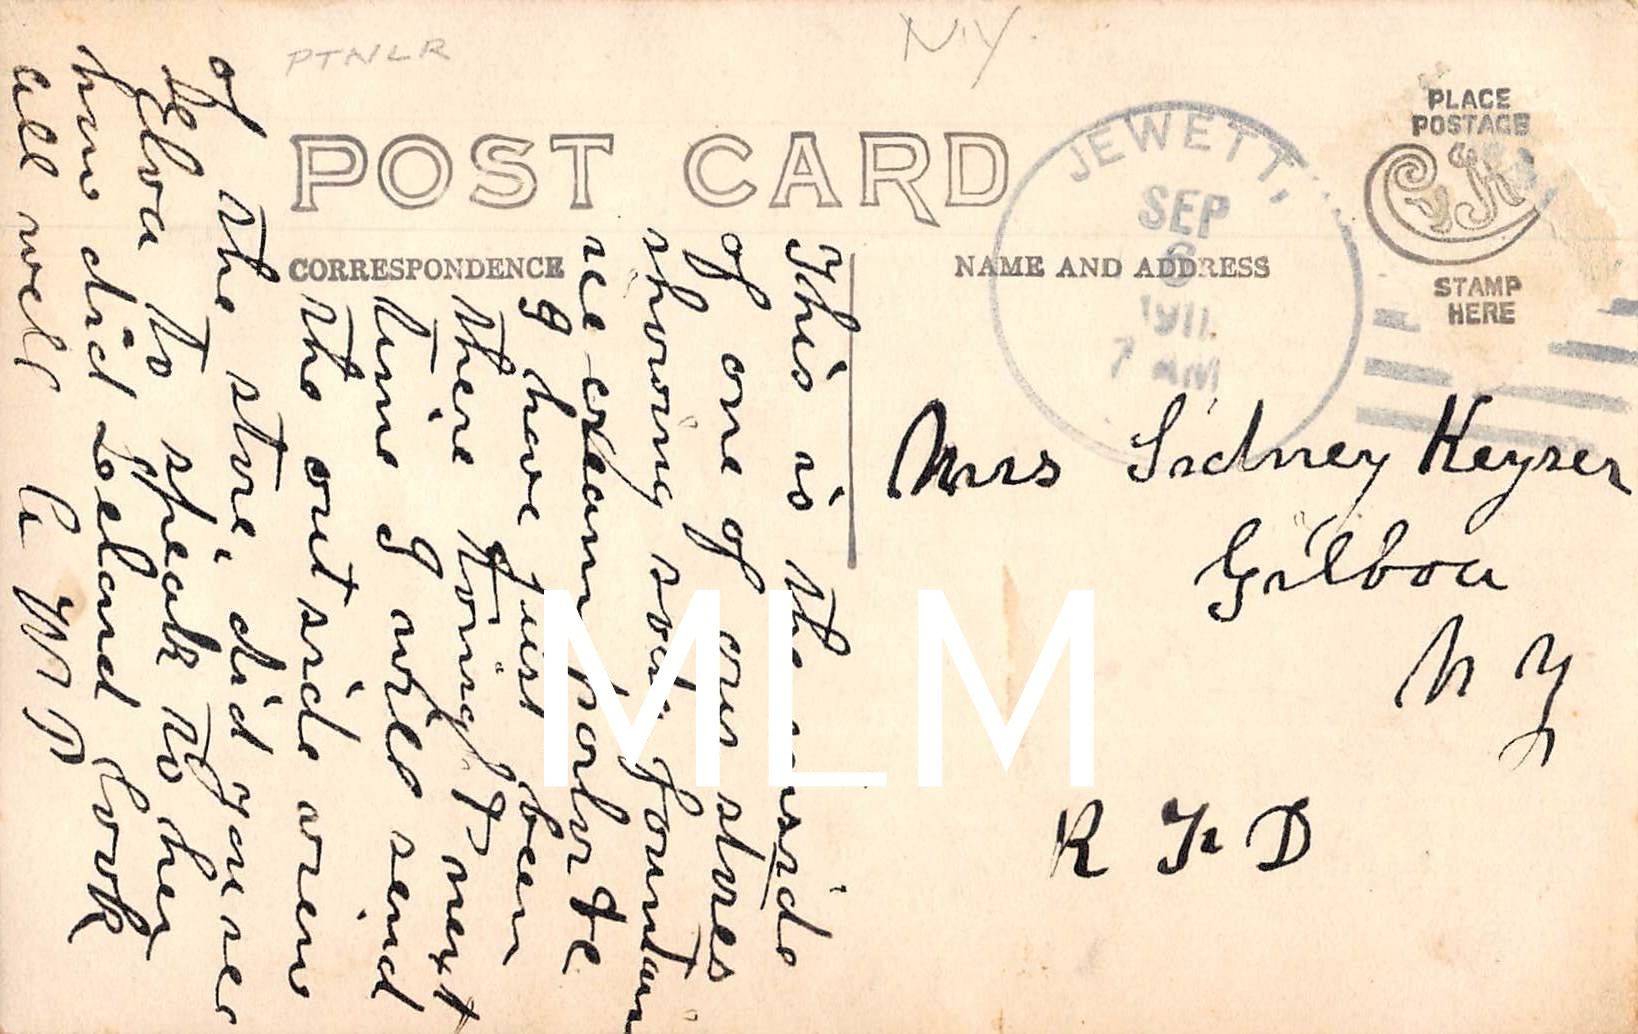 PTNLR
N.Y.
POST CARD
CORRESPONDENCE
NAME AND ADDRESS
JEWETT,
SEP
6
1911
7 AM
PLACE
POSTAGE
CYKO
STAMP
HERE
This is the inside
of one of our stores
showing soda fountain
ice cream parlor &c
I have just been
there toing it next
time I will send
the out side view
of the store did you see
Elva to speak to her
how did Leland look
all well C W P
Mrs Sidney Keyser
Gilboa
N Y
R F D
MLM